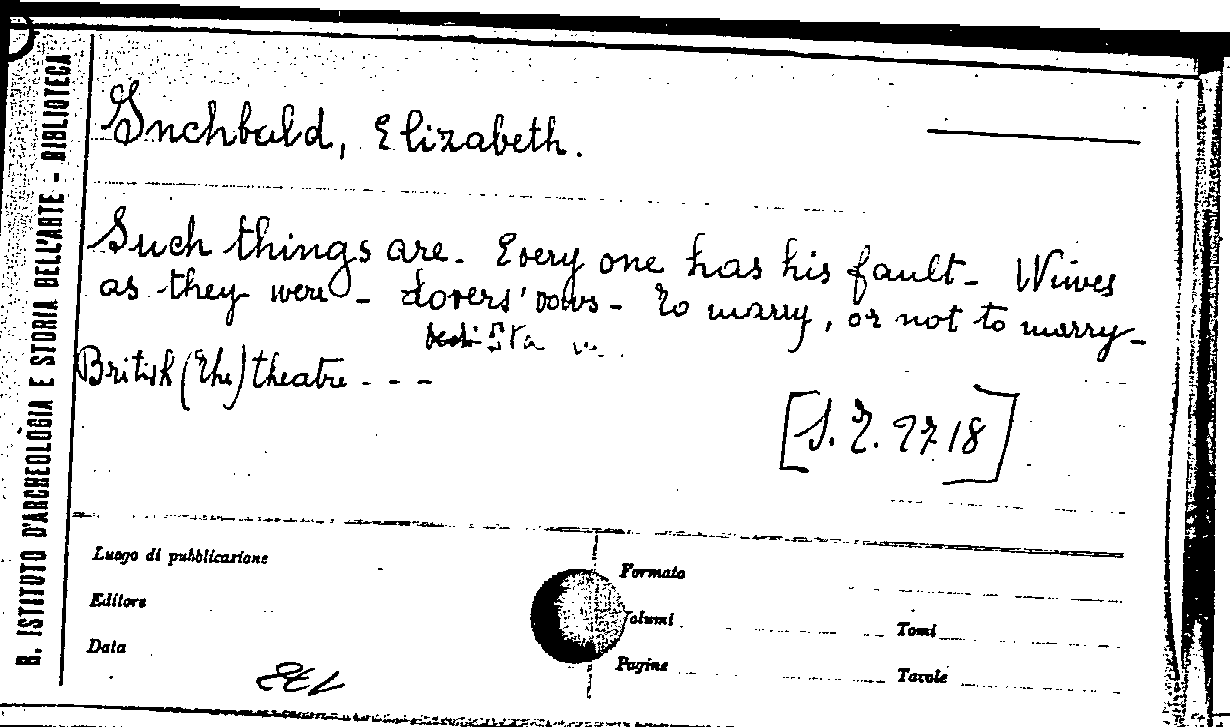 R. ISTITUTO D'ARCHEOLOGIA E STORIA DELL'ARTE - BIBLIOTECA
Inchbald, Elizabeth.
Such things are. Every one has his fault - Wiwes
as they were - Lovers' vows - To marry, or not to marry -
British (The) theatre - - -
Luogo di pubblicazione
Editore
Data
Formato
Volumi
Pagine
Tomi
Tavole